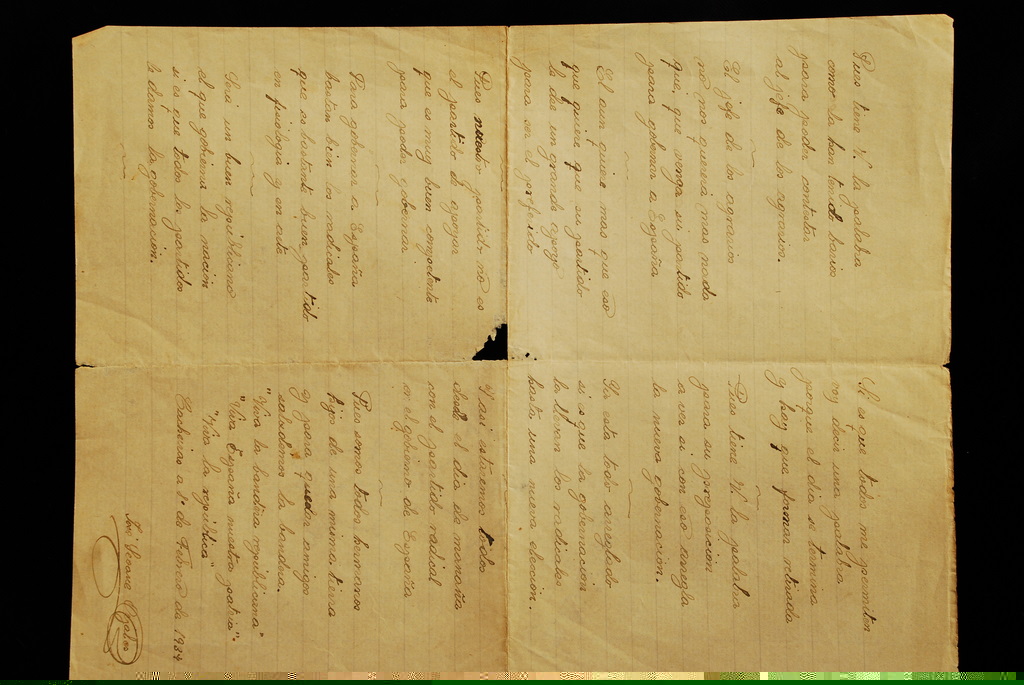 Pues tiene V. la palabra
como la han tenido barios
para poder contestar
al jefe de los agrarios.
El jefe de los agrarios
no nos querrá mas nada
que, que venga su partido
para gobernar a España
El aun quiere mas que eso
que quiere que su partido
le dee un grande apoyo
para ser el preferido
Pues nuestro partido no es
el partido de apoyar
que es muy bien competente
para poder gobernar
Para gobernar a España
bastan bien los radicales
que es bastante buen partido
en fisologia y en arte
Será un buen republicano
el que gobierna la nación
si es que todos los partidos
le damos la gobernacion.
Si es que todos me permiten
voy decir una palabra
porque el dia se termina
y hay que formar retirada
Pues tiene V. la palabra
para su preposicion
a ver si con eso arregla
la nueva gobernacion.
Ya está todo arreglado
si es que la gobernacion
la llevan los radicales
hasta una nueva elección.
Y asi estaremos todos
desde el dia de mañana
con el partido radical
en el gobierno de España
Pues somos todos hermanos
hijos de una misma tierra
y para quedar amigos
saludemos la bandera.
"Viva la bandera republicana"
"Viva España nuestra patria".
"Viva la republica"
a 1º de Febrero de 1934
José